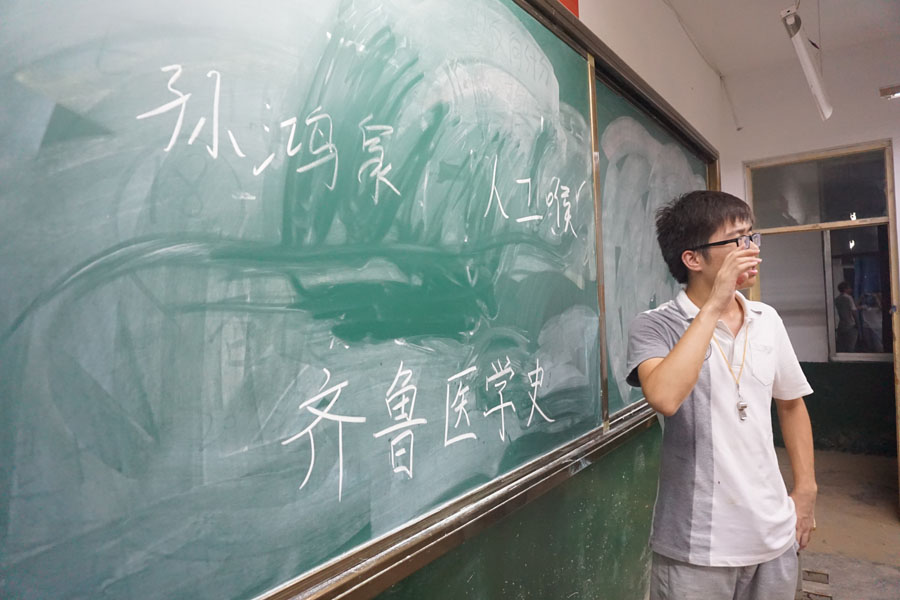 孙鸿泉、人工喉
齐鲁医学史